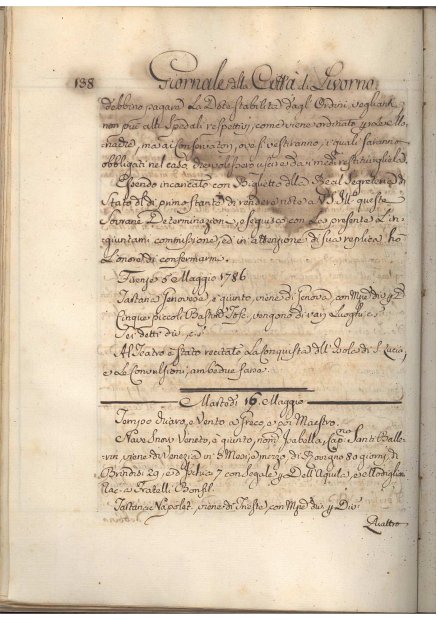 138 Giornale della Città di Livorno
debbino pagare la Dote stabilita dagl'Ordini veglianti
non più alli Spedali respettivi, come viene ordinato
ma ai Conservatori, ove si vestiranno, i quali saranno
obbligati nel caso che volessero uscire da Monache restituirglela
Essendo incaricato con Biglietto della Real Segreteria di
Stato del dì primo stante di rendere note a V.S. Ill. queste
Sovrane Determinazioni, eseguisco con la presente l'in=
giuntami commissione, ed in attenzione di sua replica ho
l'onore di confermarmi
Firenze 6 Maggio 1786
Tartana Genovese è giunto, viene di Genova con
Cinque piccoli Bastim. Tosc. vengono di varj Luoghi
Sei detti
Al Teatro è stato recitato la Conquista dell'Isola di S. Lucia,
e le Convulsioni, ambedue farse
Martedì 16 Maggio
Tempo vario, e Vento a Greco, e poi Maestro
Nave Snow Veneto, è giunto, nom. Isabella, Cap.no Santi Balle=
rin, viene di Venezia in 3 Mesi, e mezzo, di Rovigno 80 giorni, di
Brindisi 29, e di 7 con legale p. Dell'Aquila, e
Rac. a Fratelli Bonfil
Tartana Napolet. viene di Trieste con
Quattro